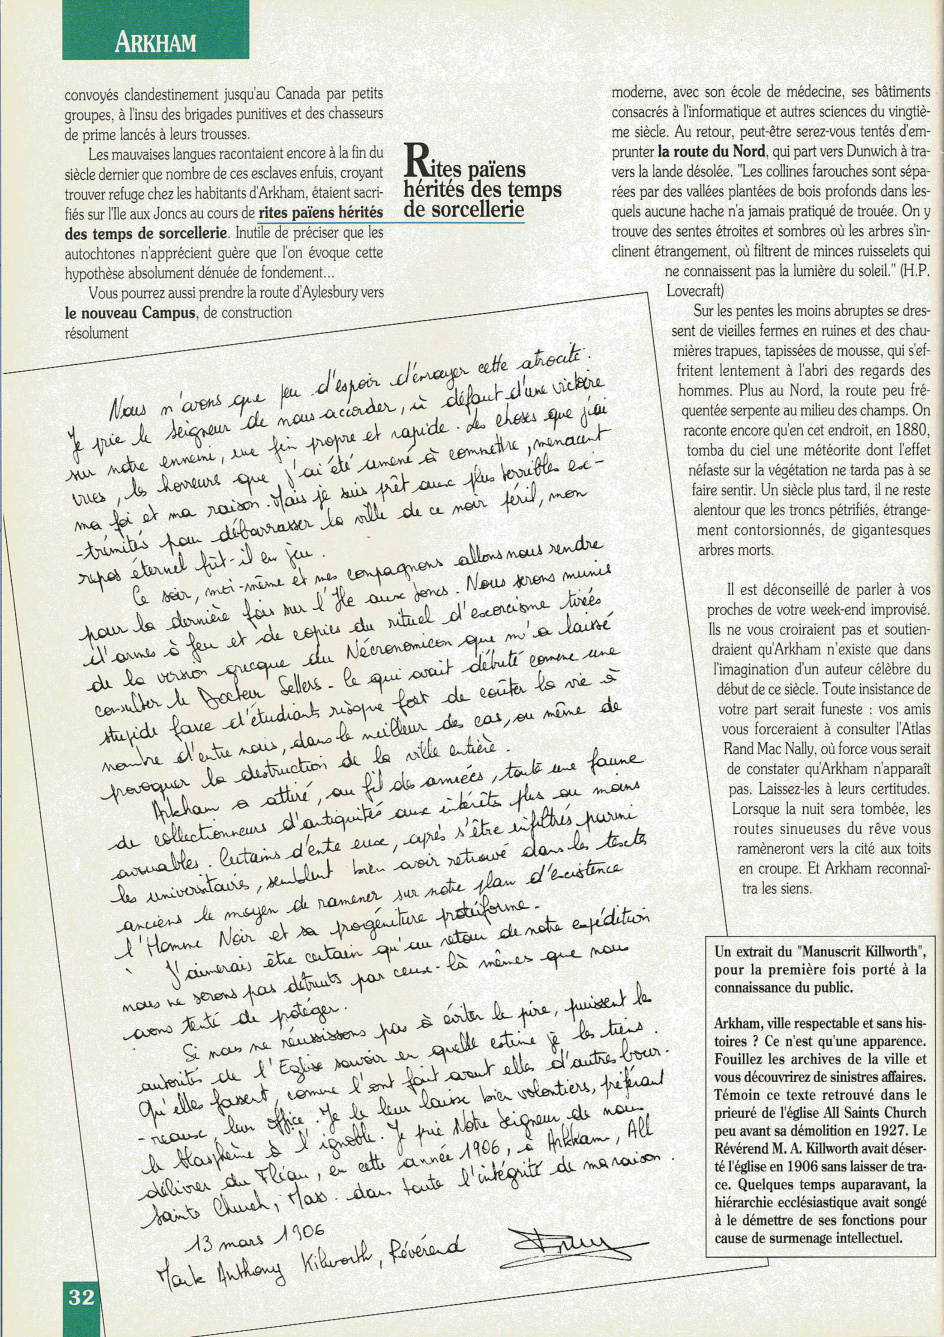 ARKHAM
convoyés clandestinement jusqu'au Canada par petits
groupes, à l'insu des brigades punitives et des chasseurs
de prime lancés à leurs trousses.
Les mauvaises langues racontaient encore à la fin du
siècle dernier que nombre de ces esclaves enfuis, croyant
trouver refuge chez les habitants d'Arkham, étaient sacri-
fiés sur l'Ile aux Joncs au cours de rites païens hérités
des temps de sorcellerie. Inutile de préciser que les
autochtones n'apprécient guère que l'on évoque cette
hypothèse absolument dénuée de fondement...
Vous pourrez aussi prendre la route d'Aylesbury vers
le nouveau Campus, de construction
résolument
Rites païens
hérités des temps
de sorcellerie
moderne, avec son école de médecine, ses bâtiments
consacrés à l'informatique et autres sciences du vingtiè-
me siècle. Au retour, peut-être serez-vous tentés d'em-
prunter la route du Nord, qui part vers Dunwich à tra-
vers la lande désolée. "Les collines farouches sont sépa-
rées par des vallées plantées de bois profonds dans les-
quels aucune hache n'a jamais pratiqué de trouée. On y
trouve des sentes étroites et sombres où les arbres s'in-
clinent étrangement, où filtrent de minces ruisselets qui
ne connaissent pas la lumière du soleil." (H.P.
Lovecraft)
Sur les pentes les moins abruptes se dres-
sent de vieilles fermes en ruines et des chau-
mières trapues, tapissées de mousse, qui s'ef-
fritent lentement à l'abri des regards des
hommes. Plus au Nord, la route peu fré-
quentée serpente au milieu des champs. On
raconte encore qu'en cet endroit, en 1880,
tomba du ciel une météorite dont l'effet
néfaste sur la végétation ne tarda pas à se
faire sentir. Un siècle plus tard, il ne reste
alentour que les troncs pétrifiés, étrange-
ment contorsionnés, de gigantesques
arbres morts.
Il est déconseillé de parler à vos
proches de votre week-end improvisé.
Ils ne vous croiraient pas et soutien-
draient qu'Arkham n'existe que dans
l'imagination d'un auteur célèbre du
début de ce siècle. Toute insistance de
votre part serait funeste : vos amis
vous forceraient à consulter l'Atlas
Rand Mac Nally, où force vous serait
de constater qu'Arkham n'apparaît
pas. Laissez-les à leurs certitudes.
Lorsque la nuit sera tombée, les
routes sinueuses du rêve vous
ramèneront vers la cité aux toits
en croupe. Et Arkham reconnaî-
tra les siens.
Nous n'avons que peu d'espoir d'enrayer cette atrocité.
Je prie le Seigneur de nous accorder, à défaut d'une victoire
sur notre ennemi, une fin propre et rapide. Les choses que j'ai
vues, les horreurs que j'ai été amené à commettre, menacent
ma foi et ma raison. Mais je suis prêt aux plus terribles ex-
-trémités pour débarrasser la ville de ce noir péril, mon
repos éternel fût-il en jeu.
Ce soir, moi-même et mes compagnons allons nous rendre
pour la dernière fois sur l'Ile aux Joncs. Nous serons munis
d'armes à feu et de copies du rituel d'exorcisme tirées
de la version grecque du Nécronomicon que m'a laissé
consulter le Docteur Sellers. Ce qui avait débuté comme une
stupide farce d'étudiants risque fort de coûter la vie à
nombre d'entre nous, dans le meilleur des cas, ou même de
provoquer la destruction de la ville entière.
Arkham a attiré, au fil des années, toute une faune
de collectionneurs d'antiquités aux intérêts plus ou moins
avouables. Certains d'ente eux, après s'être infiltrés parmi
les universitaires, semblent bien avoir retrouvé dans les textes
anciens le moyen de ramener sur notre plan d'existence
l'Homme Noir et sa progéniture protéiforme.
J'aimerais être certain qu'au retour de notre expédition
nous ne serons pas détruits par ceux-là mêmes que nous
avons tenté de protéger.
Si nous ne réussissons pas à éviter le pire, puissent les
autorités de l'Eglise savoir en quelle estime je les tiens.
Qu'elles fassent, comme l'ont fait avant elles d'autres bour-
-reaux leur office. Je le leur laisse bien volontiers, préférant
le blasphème à l'ignoble. Je prie Notre Seigneur de nous
délivrer du Fléau, en cette année 1906, à Arkham, All
Saints Church, Mass. dans toute l'intégrité de ma raison.
13 mars 1906
Mark Anthony Kilworth, Révérend
Un extrait du "Manuscrit Killworth",
pour la première fois porté à la
connaissance du public.
Arkham, ville respectable et sans his-
toires ? Ce n'est qu'une apparence.
Fouillez les archives de la ville et
vous découvrirez de sinistres affaires.
Témoin ce texte retrouvé dans le
prieuré de l'église All Saints Church
peu avant sa démolition en 1927. Le
Révérend M. A. Killworth avait déser-
té l'église en 1906 sans laisser de tra-
ce. Quelques temps auparavant, la
hiérarchie ecclésiastique avait songé
à le démettre de ses fonctions pour
cause de surmenage intellectuel.
32